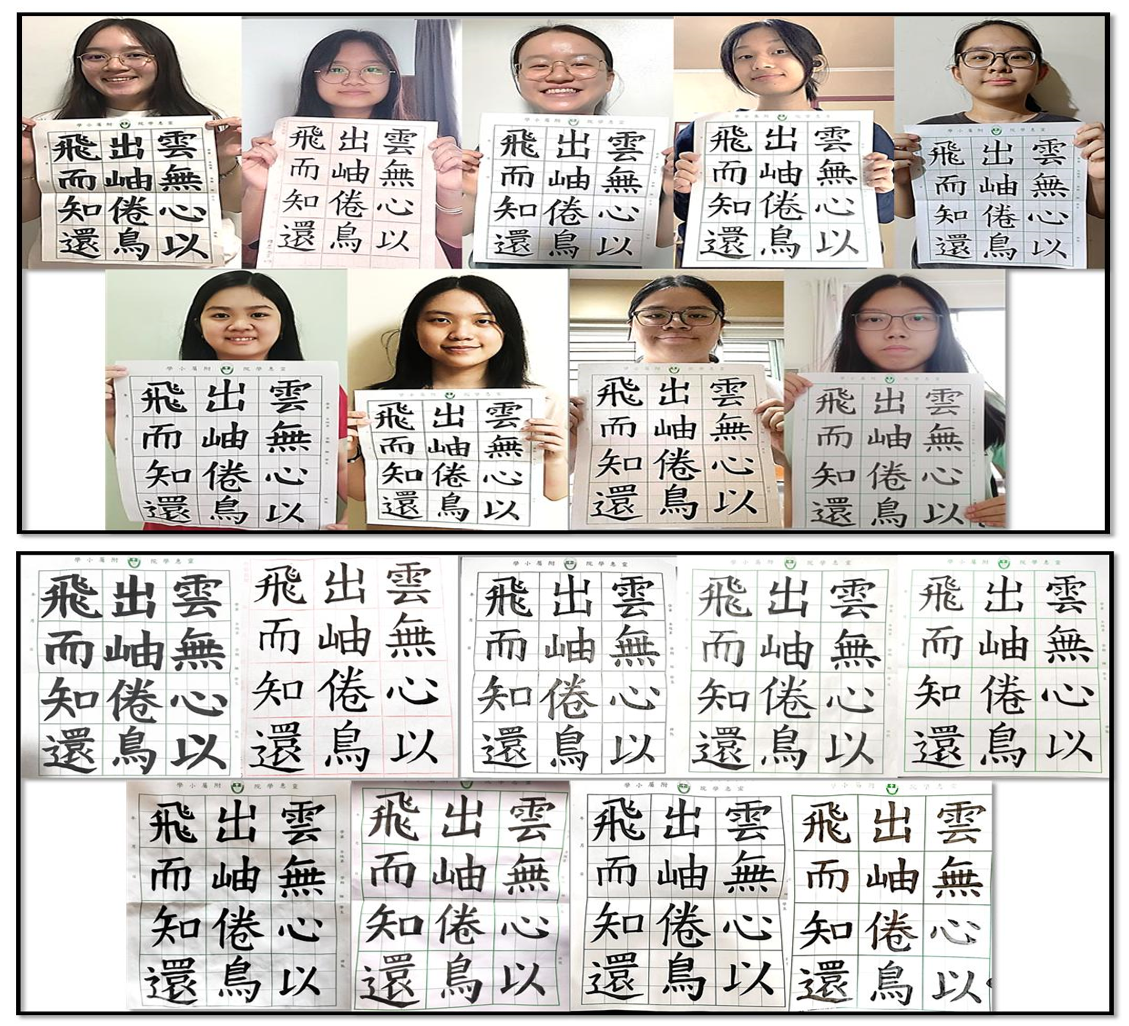 雲無心以
出岫倦鳥
飛而知還
雲無心以
出岫倦鳥
飛而知還
雲無心以
出岫倦鳥
飛而知還
雲無心以
出岫倦鳥
飛而知還
雲無心以
出岫倦鳥
飛而知還
雲無心以
出岫倦鳥
飛而知還
雲無心以
出岫倦鳥
飛而知還
雲無心以
出岫倦鳥
飛而知還
雲無心以
出岫倦鳥
飛而知還
雲無心以
出岫倦鳥
飛而知還
雲無心以
出岫倦鳥
飛而知還
雲無心以
出岫倦鳥
飛而知還
雲無心以
出岫倦鳥
飛而知還
雲無心以
出岫倦鳥
飛而知還
雲無心以
出岫倦鳥
飛而知還
雲無心以
出岫倦鳥
飛而知還
雲無心以
出岫倦鳥
飛而知還
雲無心以
出岫倦鳥
飛而知還